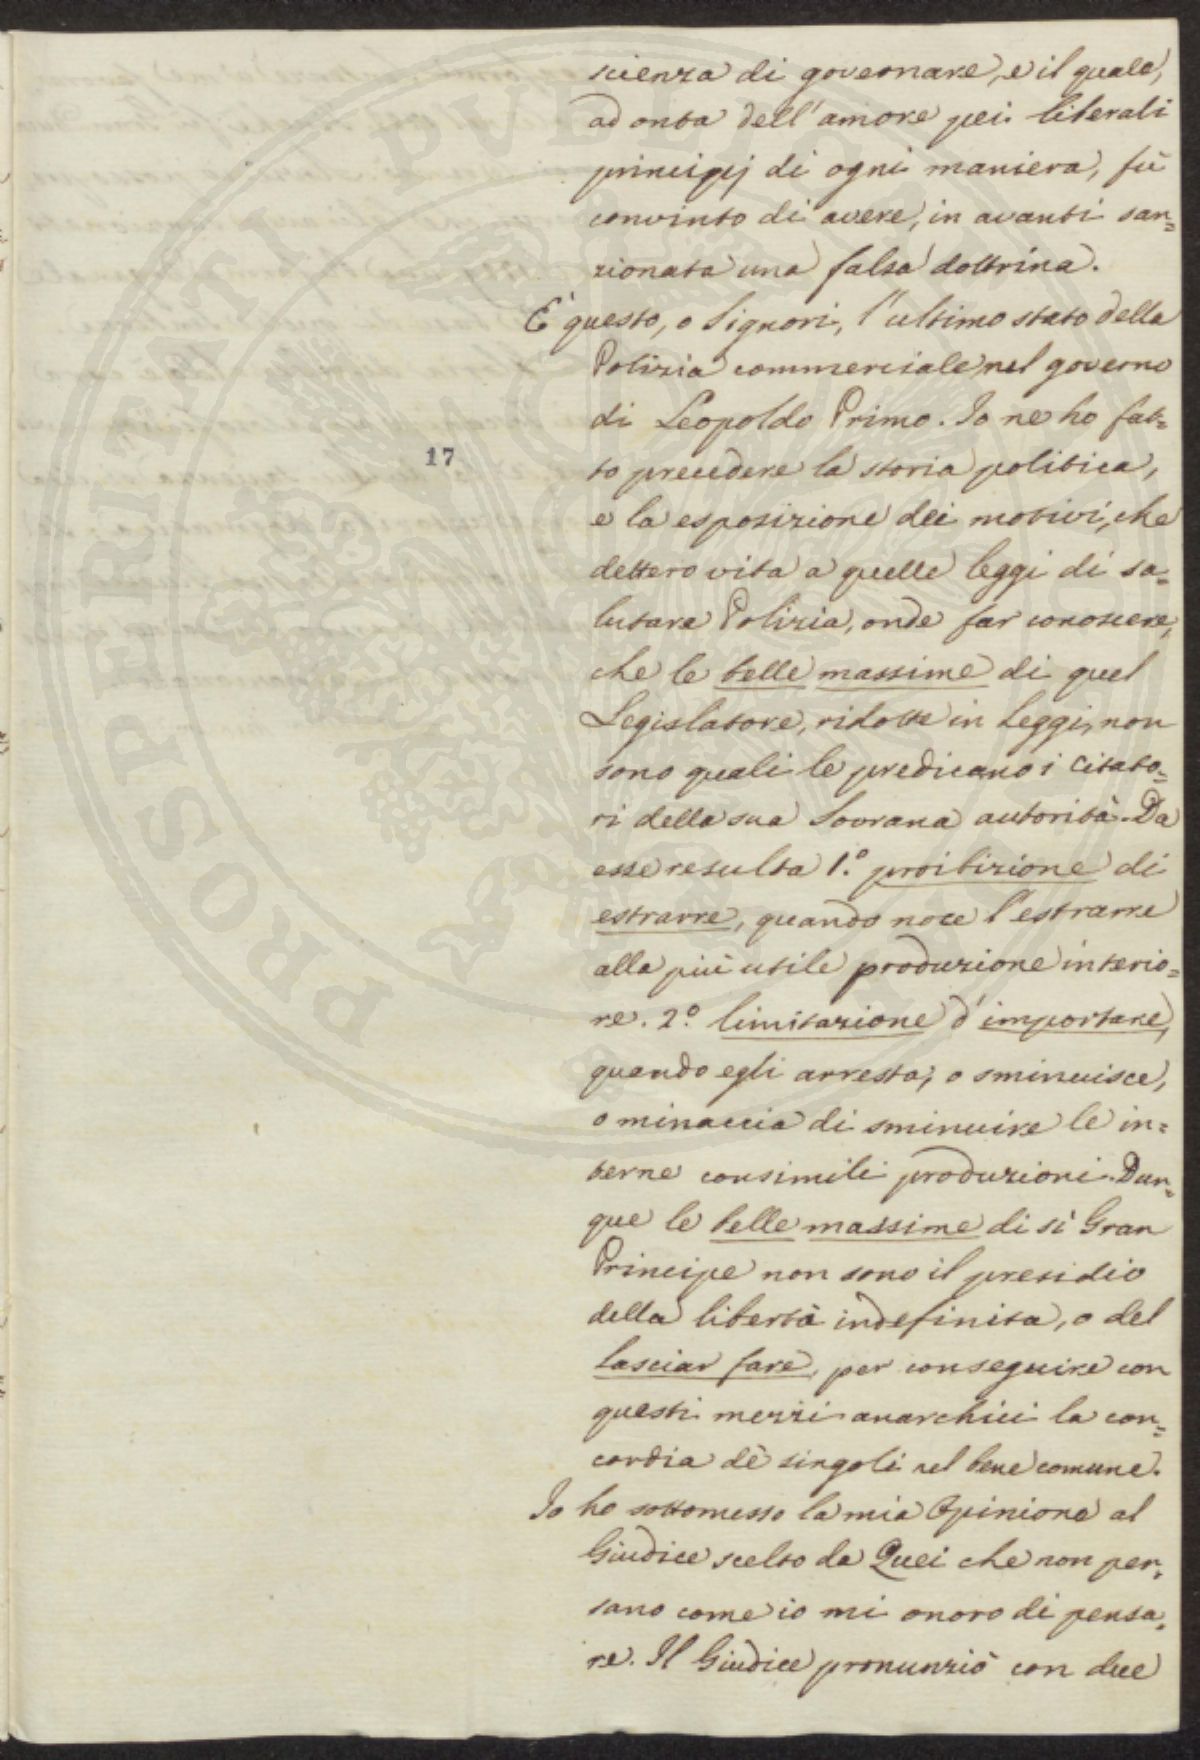 scienza di governare, e il quale,
ad onta dell'amore pei liberali
principj di ogni maniera, fù
convinto di avere, in avanti san=
zionata una falsa dottrina.
E' questo, o Signori, l'ultimo stato della
Polizia commerciale nel governo
di Leopoldo Primo. Io ne ho fat=
to precedere la storia politica,
e la esposizione dei motivi, che
dettero vita a quelle leggi di sa=
lutare Polizia, onde far conoscere,
che le belle massime di quel
Legislatore, ridotte in Leggi, non
sono quali le predicano i Citato=
ri della sua Sovrana autorità. Da
esse resulta 1.° proibizione di
estrarre, quando noce l'estrarre
alla più utile produzione interio=
re. 2.° limitazione d'importare,
quando egli arresta, o sminuisce,
o minaccia di sminuire le in=
terne consimili produzioni. Dun=
que le belle massime di sì Gran
Principe non sono il presidio
della libertà indefinita, o del
lasciar fare, per conseguire con
questi mezzi anarchici la con=
cordia dè singoli nel bene comune.
Io ho sottomesso la mia Opinione al
Giudice scelto da Quei che non pen=
sano come io mi onoro di pensa=
re. Il Giudice pronunziò con due
17
PROSPERITATI PUBLICAE